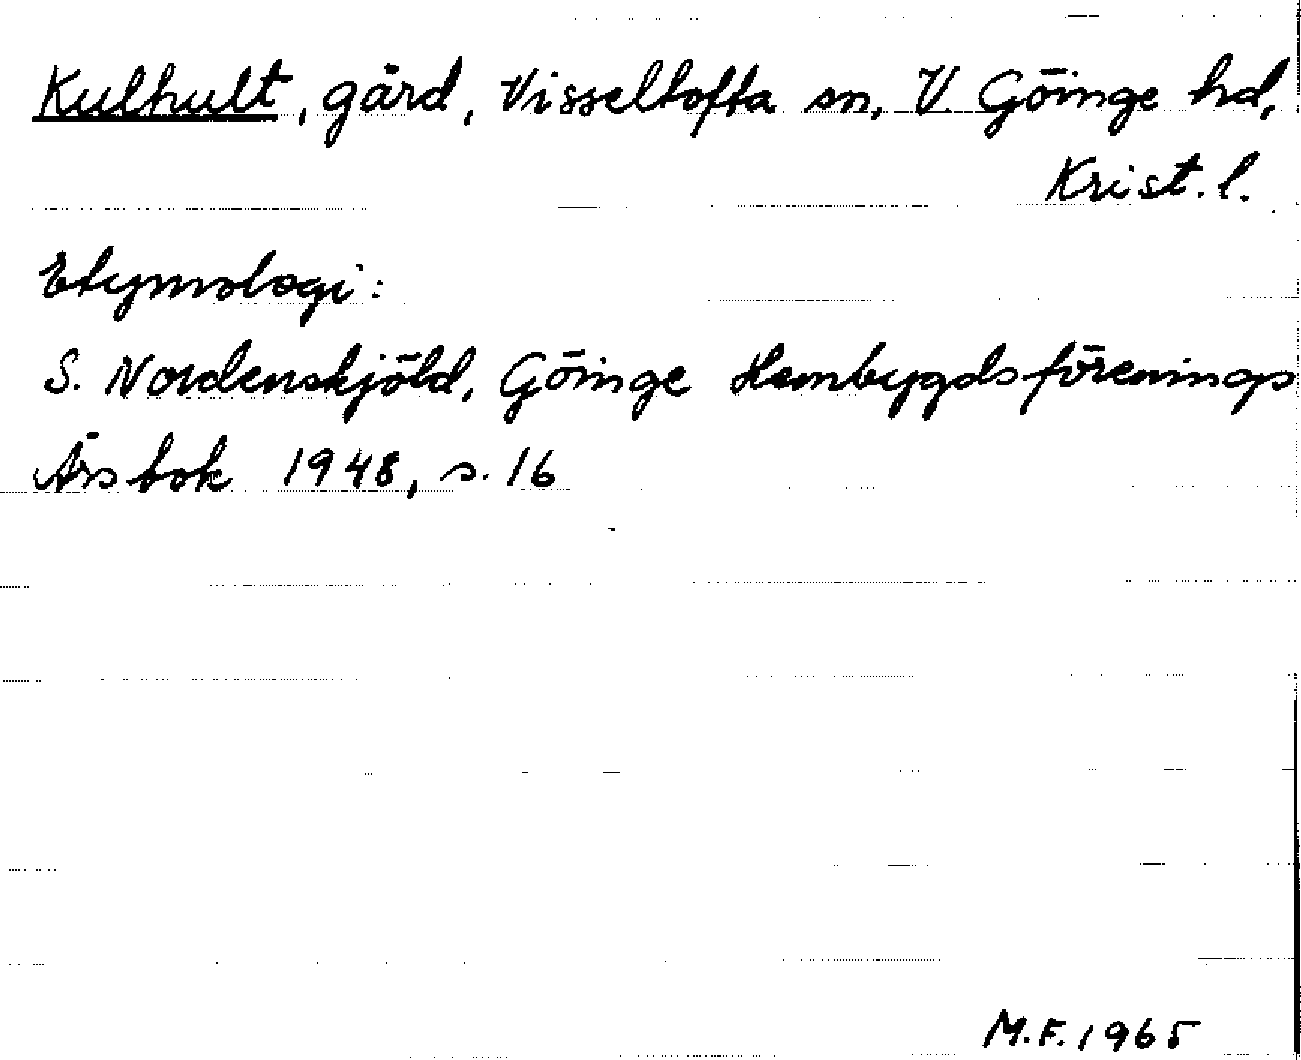 Kulhult, gård, Visseltofta sn, V Göinge hd,
Krist. l.
Etymologi:
S. Nordenskjöld, Göinge Hembygdsförenings
Årsbok 1948, s. 16
M.F. 1965